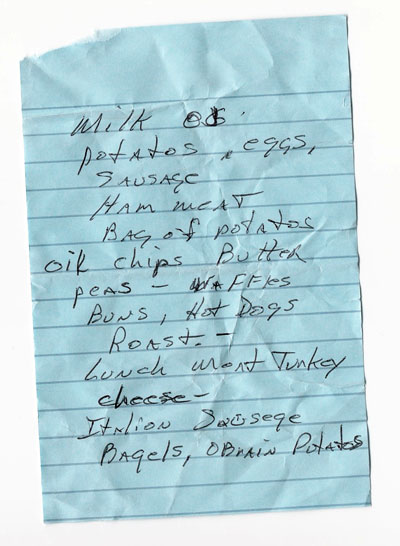 Milk
potatos, eggs,
Sausage
Ham meat
Bag of potatos
oik chips Butter
peas - waffles
Buns, Hot Dogs
Roast. -
Lunch meat Turkey
cheese -
Italion Sausege
Bagels, OBrain Potatos